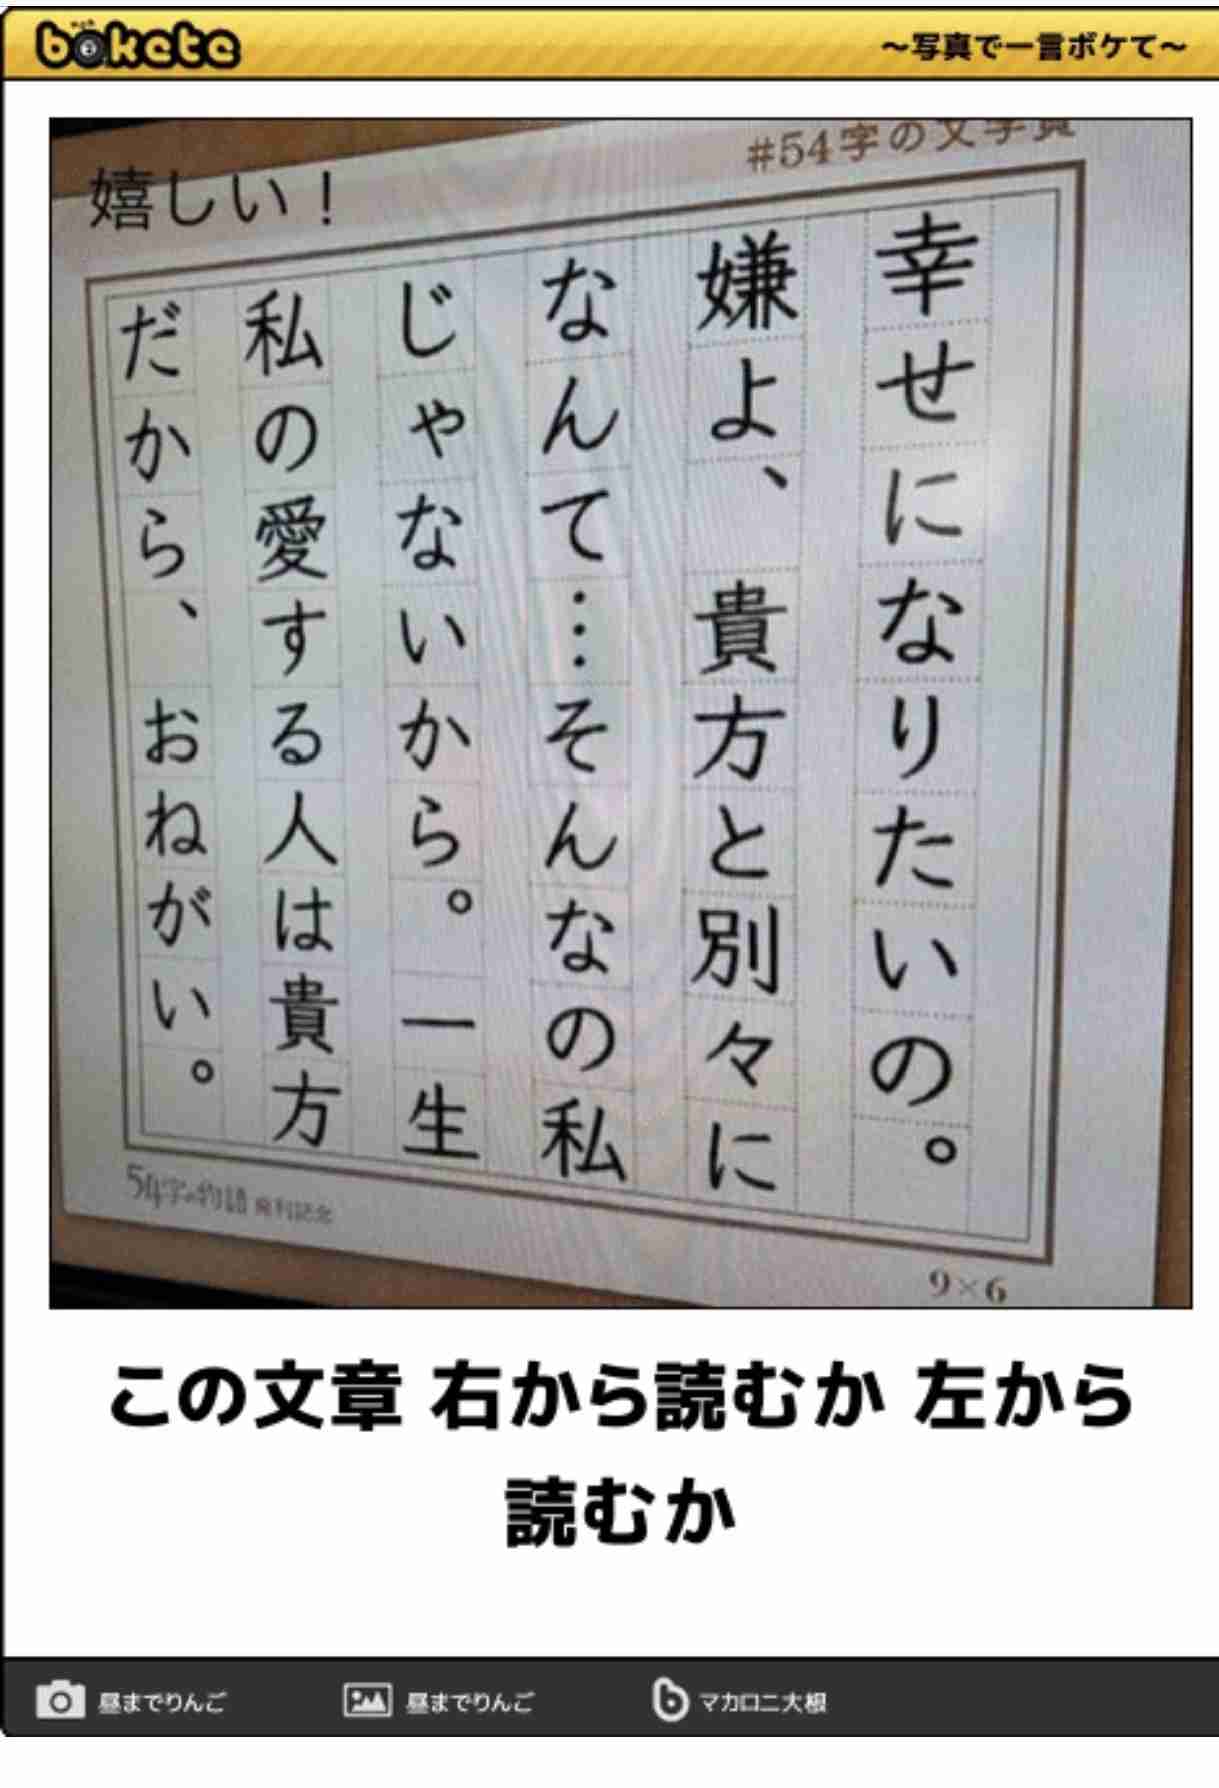 bokete
～写真で一言ボケて～
#54字の文学賞
嬉しい！
幸せになりたいの。
嫌よ、貴方と別々に
なんて…そんなの私
じゃないから。一生
私の愛する人は貴方
だから、おねがい。
54字の物語 発刊記念
9×6
この文章 右から読むか 左から
読むか
昼までりんご
昼までりんご
マカロニ大根